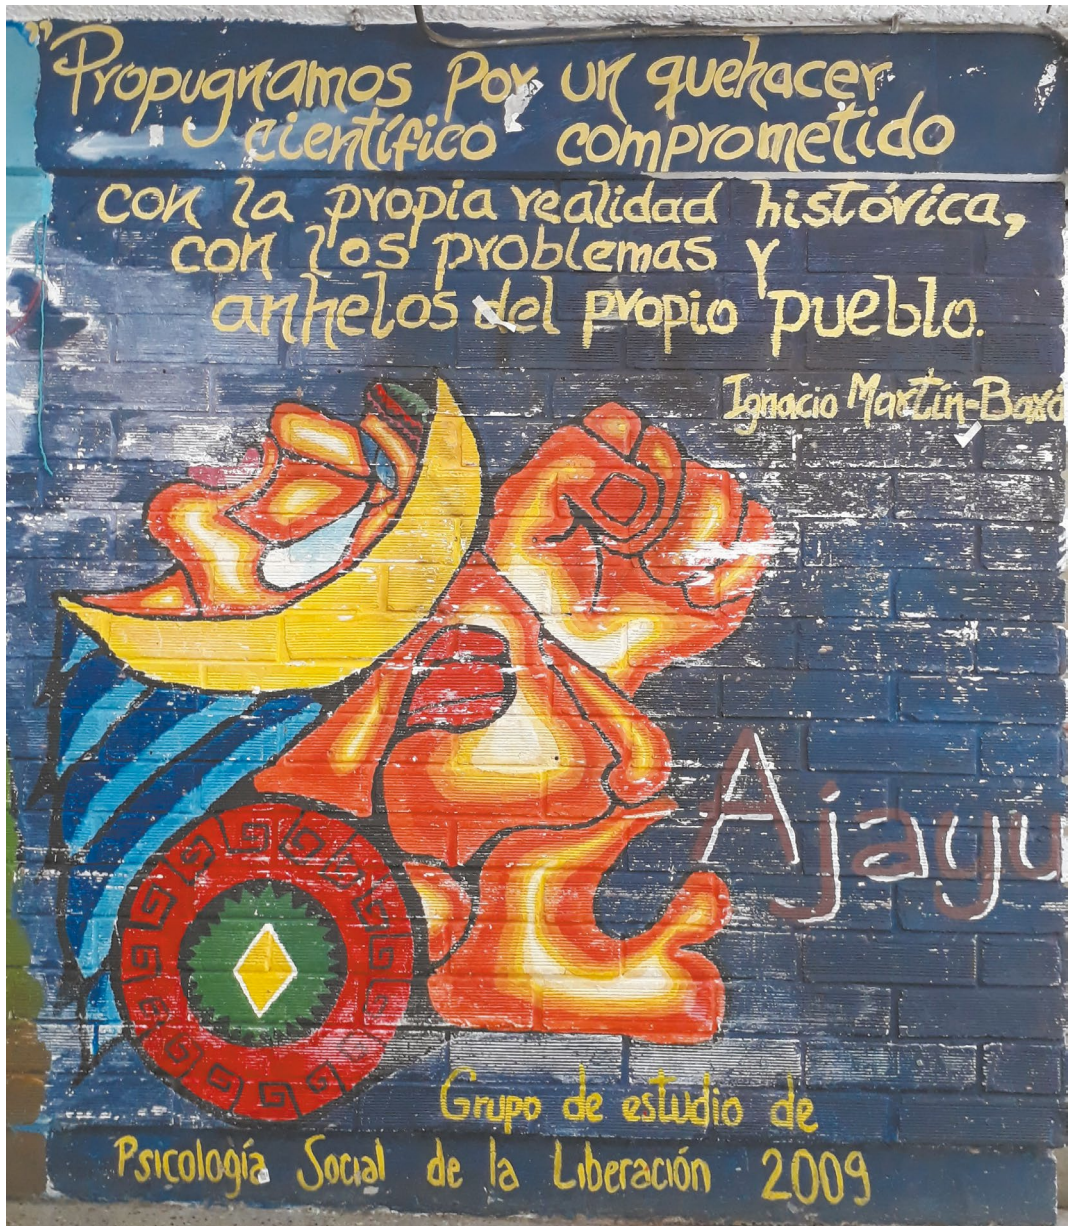 "Propugnamos por un quehacer
científico comprometido
con la propia realidad histórica,
con los problemas y
anhelos del propio pueblo.
Ignacio Martín-Baró
Ajayu
Grupo de estudio de
Psicología Social de la Liberación 2009